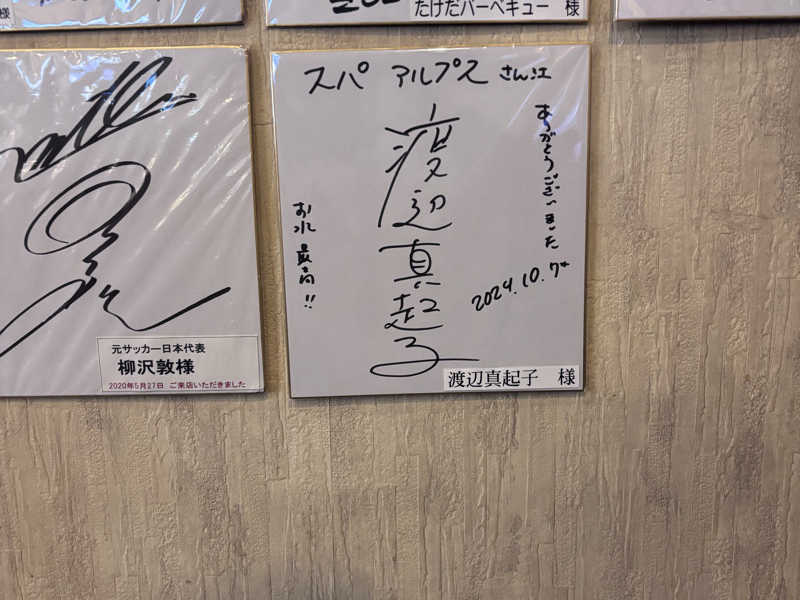 様
たけだバーベキュー 様
スパ アルプス さん江
ありがとうございました
渡辺真起子
お水 最高!!
2024.10.7
渡辺真起子 様
元サッカー日本代表
柳沢敦様
2020年5月27日 ご来店いただきました